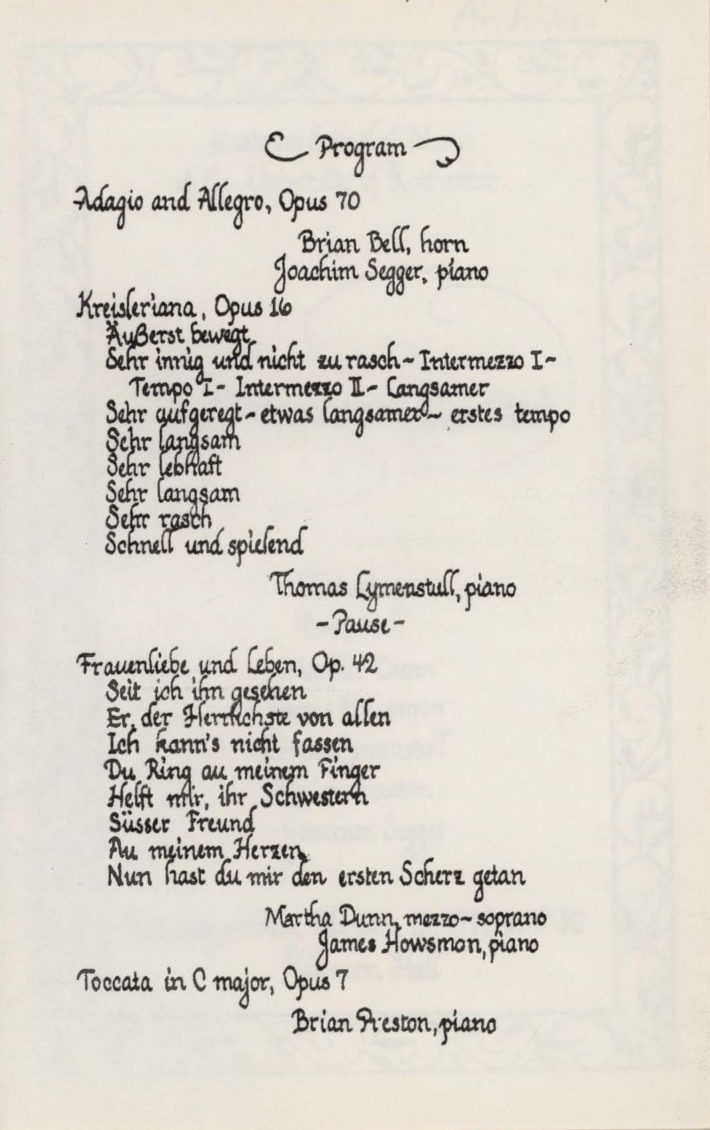 Program
Adagio and Allegro, Opus 70
Brian Bell, horn
Joachim Segger, piano
Kreisleriana, Opus 16
Äußerst bewegt
Sehr innig und nicht zu rasch - Intermezzo I -
Tempo I - Intermezzo II - Langsamer
Sehr aufgeregt - etwas langsamer - erstes tempo
Sehr langsam
Sehr lebhaft
Sehr langsam
Sehr rasch
Schnell und spielend
Thomas Lymenstull, piano
- Pause -
Frauenliebe und Leben, Op. 42
Seit ich ihn gesehen
Er, der Herrlichste von allen
Ich kann's nicht fassen
Du Ring au meinem Finger
Helft mir, ihr Schwestern
Süsser Freund
Au meinem Herzen
Nun hast du mir den ersten Scherz getan
Martha Dunn, mezzo-soprano
James Howsmon, piano
Toccata in C major, Opus 7
Brian Preston, piano